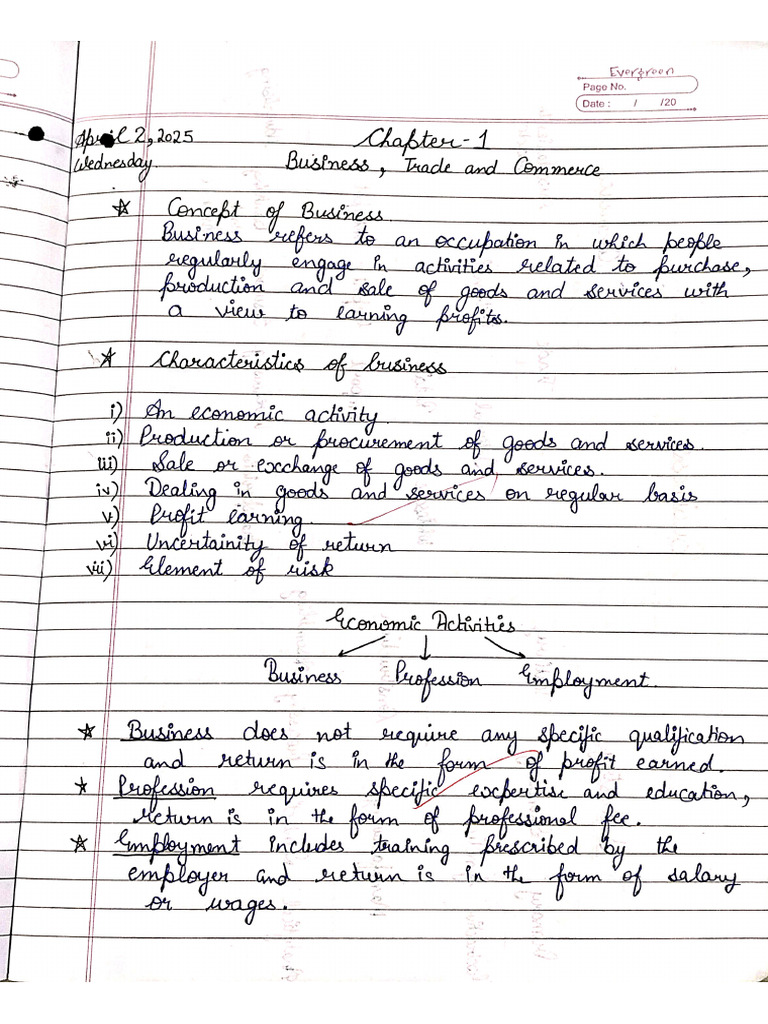 Evergreen
Page No.
Date : / /20
April 2, 2025
Wednesday.
Chapter-1
Business, Trade and Commerce
☆ Concept of Business
Business refers to an occupation in which people
regularly engage in activities related to purchase,
production and sale of goods and services with
a view to earning profits.
☆ Characteristics of business
i) An economic activity
ii) Production or procurement of goods and services.
iii) Sale or exchange of goods and services.
iv) Dealing in goods and services on regular basis
v) Profit earning
vi) Uncertainity of return
viii) Element of risk
Economic Activities
Business Profession Employment.
☆ Business does not require any specific qualification
and return is in the form of profit earned.
☆ Profession requires specific expertise and education,
return is in the form of professional fee.
☆ Employment includes training prescribed by the
employer and return is in the form of salary
or wages.